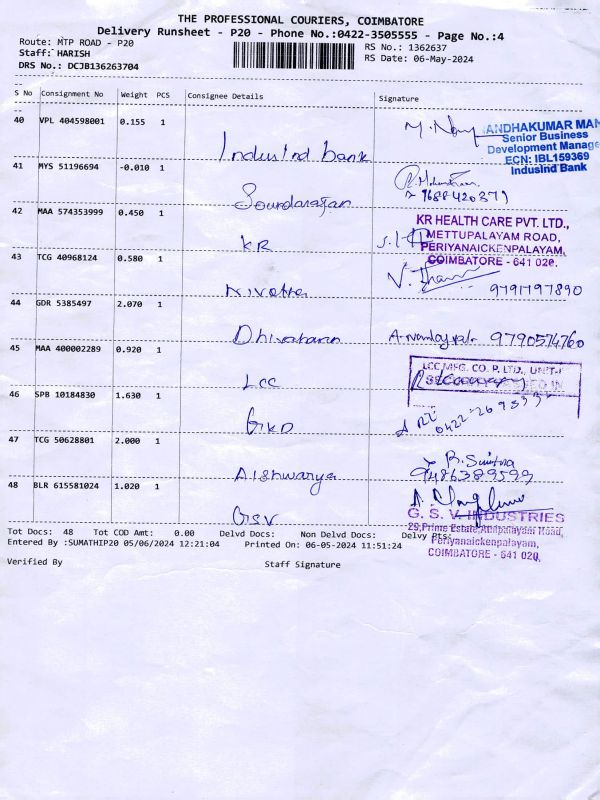 THE PROFESSIONAL COURIERS, COIMBATORE
Delivery Runsheet - P20 - Phone No.:0422-3505555 - Page No.:4
Route: MTP ROAD - P20
RS No.: 1362637
Staff: HARISH
RS Date: 06-May-2024
DRS No.: DCJB136263704
S No Consignment No Weight PCS Consignee Details Signature
40 VPL 404598001 0.155 1 IndusInd bank
ANDHAKUMAR MAN
Senior Business
Development Manage
ECN: IBL159369
IndusInd Bank
41 MYS 51196694 -0.010 1 Soundarajan
9688420379
42 MAA 574353999 0.450 1 KR
KR HEALTH CARE PVT. LTD.,
METTUPALAYAM ROAD,
PERIYANAICKENPALAYAM,
COIMBATORE - 641 020.
43 TCG 40968124 0.580 1
9791797890
44 GDR 5385497 2.070 1 Dhivaharan
9790574760
45 MAA 400002289 0.920 1 LCC
LCC MFG. CO. P. LTD., UNIT-I
46 SPB 10184830 1.630 1 GKD
47 TCG 50628801 2.000 1 Aishwarya
9486389599
48 BLR 615581024 1.020 1 GSV
G. S. V. INDUSTRIES
Periyanaickenpalayam,
COIMBATORE - 641 020.
Tot Docs: 48 Tot COD Amt: 0.00 Delvd Docs: Non Delvd Docs: Delvy Pts:
Entered By :SUMATHIP20 05/06/2024 12:21:04 Printed On: 06-05-2024 11:51:24
Verified By Staff Signature